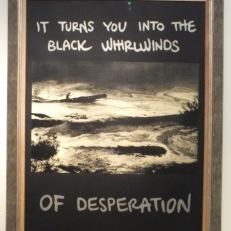 IT TURNS YOU INTO THE
BLACK WHIRLWINDS
OF DESPERATION